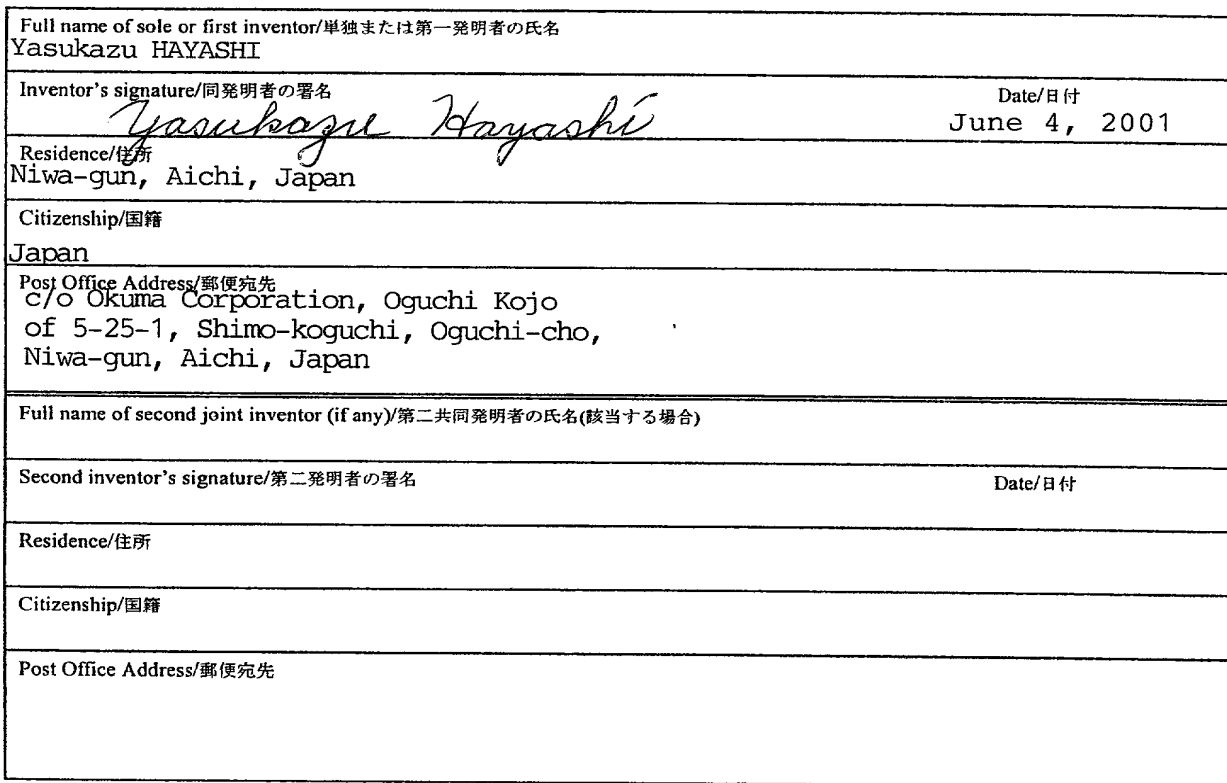 Full name of sole or first inventor/単独または第一発明者の氏名
Yasukazu HAYASHI
Inventor's signature/同発明者の署名 Date/日付
Yasukazu Hayashi June 4, 2001
Residence/住所
Niwa-gun, Aichi, Japan
Citizenship/国籍
Japan
Post Office Address/郵便宛先
c/o Okuma Corporation, Oguchi Kojo
of 5-25-1, Shimo-koguchi, Oguchi-cho,
Niwa-gun, Aichi, Japan
Full name of second joint inventor (if any)/第二共同発明者の氏名(該当する場合)
Second inventor's signature/第二発明者の署名 Date/日付
Residence/住所
Citizenship/国籍
Post Office Address/郵便宛先